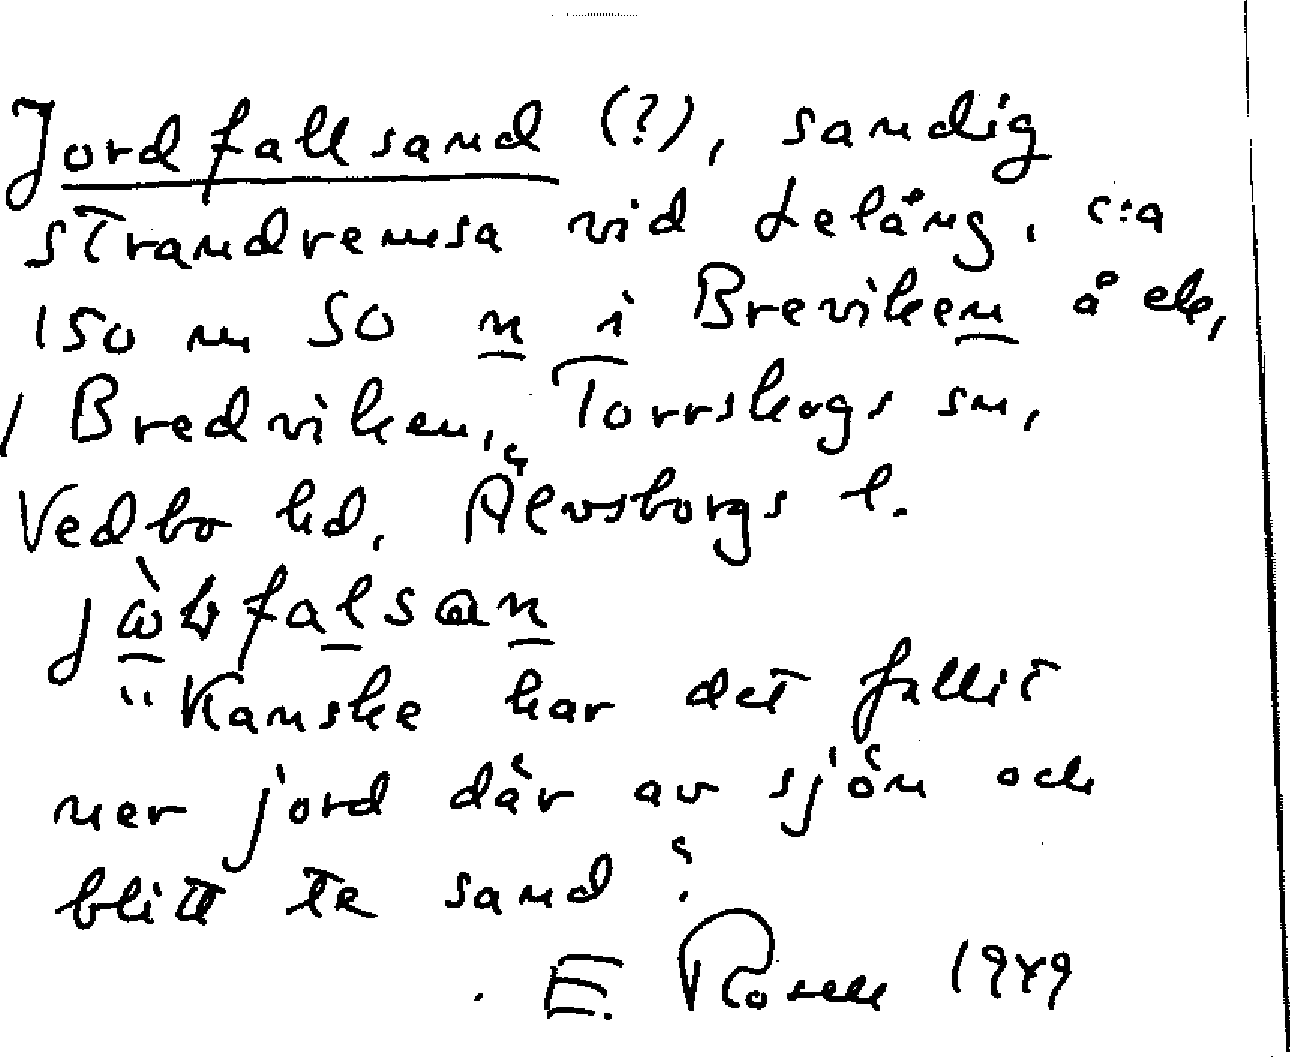 Jordfallsand (?), sandig
strandremsa vid Lelång, c:a
150 m SO n i Breviken å ek,
/ Bredviken, Torrskogs sn,
Vedbo hd, Älvsborgs l.
"Kanske har det fallit
ner jord där av sjön och
blitt te sand".
E. Rosell 1949